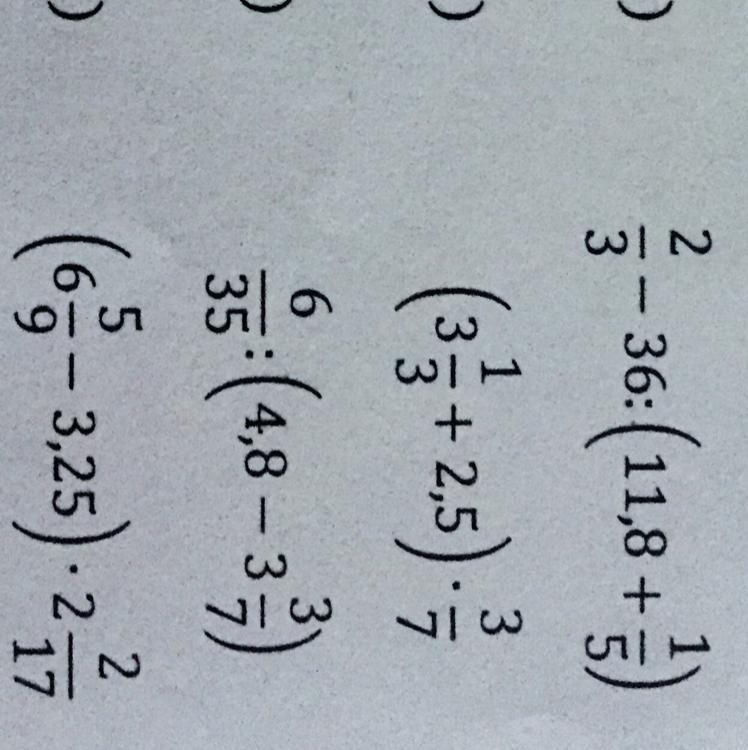 ) 2/3 − 36:(11,8 + 1/5)
) (3 1/3 + 2,5) · 3/7
) 6/35 : (4,8 − 3 3/7)
) (6 5/9 − 3,25) · 2 2/17